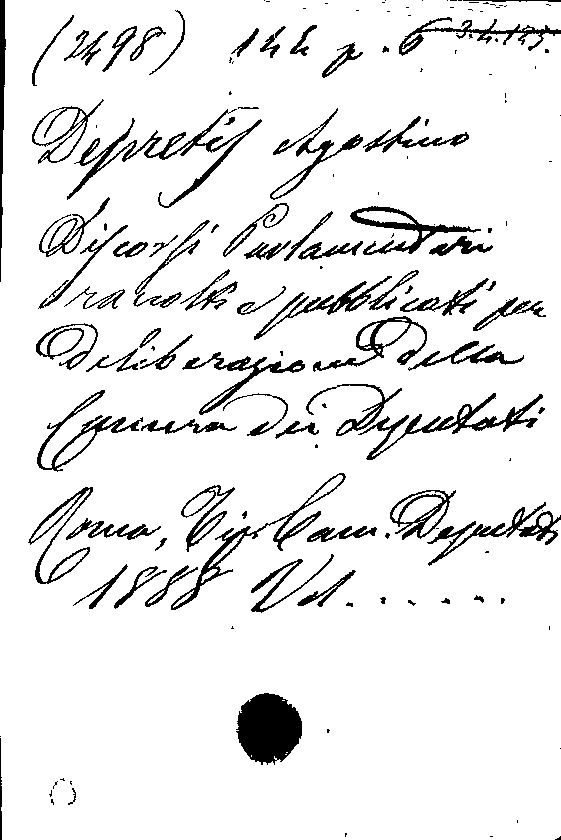 (2498) 142 p. 6 3.4.125.
Depretis Agostino
Discorsi Parlamentari
racolti e pubblicati per
deliberazione della
Camera dei Deputati
Roma, Tip. Cam. Deputati
1888 Vol. . . . . . .